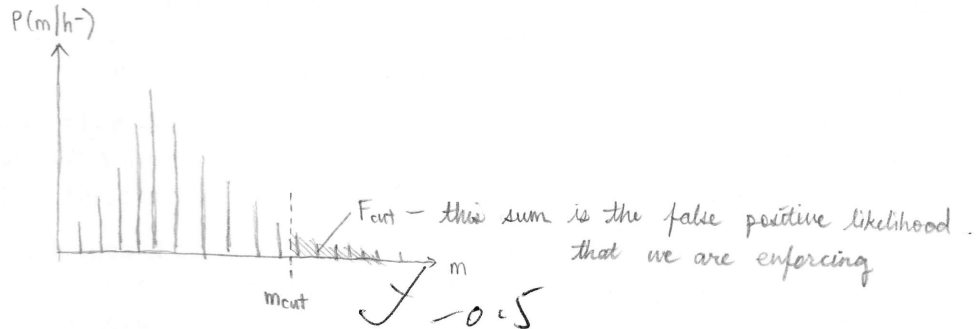 P(m|h-)
Fcut - this sum is the false positive likelihood.
that we are enforcing
m
mcut
-0.5